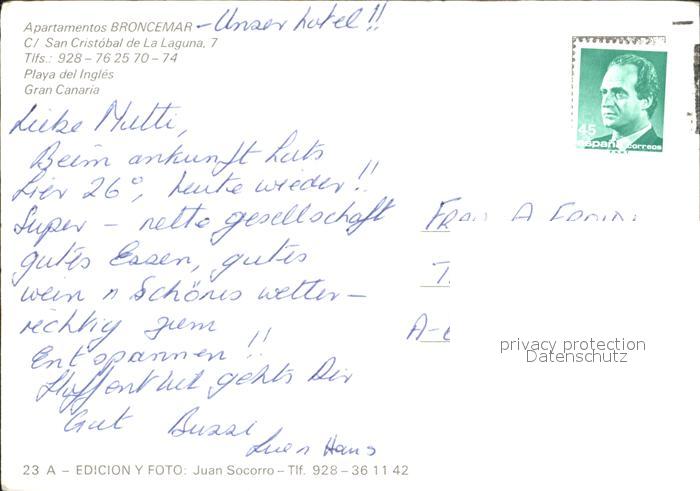 Apartamentos BRONCEMAR – Unser hotel !!
C/ San Cristóbal de La Laguna, 7
Tlfs.: 928 – 76 25 70 – 74
Playa del Inglés
Gran Canaria
Liebe Mutti,
Beim ankunft hats
hier 26°, heute wieder !!
Super – nette gesellschaft
gutes Essen, gutes
wein n Schönes wetter –
richtig zum
Entspannen !!
Hoffentlich gehts Dir
Gut Bussi
Hans
45
españa correos
Frau A
A-
privacy protection
Datenschutz
23 A – EDICION Y FOTO: Juan Socorro – Tlf. 928 – 36 11 42